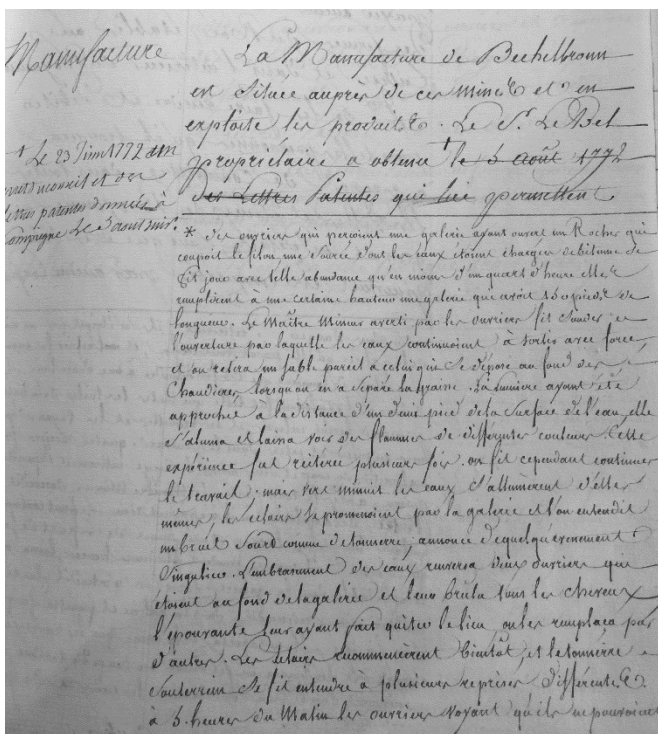 Manufacture
La Manufacture de Bechelbronn
est située auprès de ces mines et en
exploite les produits. Le Sr. Le Bel
propriétaire a obtenu † le 3 août 1772
des Lettres Patentes qui lui permettent
† Le 23 Juin 1772 un
arrest du conseil et des
lettres patentes données à
Compiegne le 3 aoust suivt.
* des ouvriers qui perçoient une galerie ayant ouvert un Rocher qui
coupoit le filon une source dont les eaux étoient chargées de bitume de
fit jour avec telle abondance qu'en moins d'un quart d'heure elles
remplirent à une certaine hauteur une galerie que avoit 150 pieds de
longueur. Le Maître Mineur averti par les ouvriers fit sonder
l'ouverture par laquelle les eaux continuoient à sortir avec force,
et on retira un sable pareil à celui qui se dépose au fond des
Chaudieres lorsqu'on en a séparé la graine. La lumiere ayant été
approchée à la distance d'un demi pied de la surface de l'eau, elle
s'aluma et laissa voir des flammes de différentes couleurs. Cette
expérience fut réiterée plusieurs fois. on fit cependant continuer
le travail; mais vers minuit les eaux s'allumerent d'elles
mêmes, les éclairs se promenoient par la galerie et l'on entendit
un bruit sourd comme de tonnerre, annonce de quelqu'évenement
singulier. L'embrasement des eaux renversa deux ouvriers qui
étoient au fond de la galerie et leur brula tous les cheveux
l'épouvante leur ayant fait quitter le lieu, on les remplaça par
d'autres. Les éclairs recommencèrent bientôt, et le tonnerre
souterrein se fit entendre à plusieurs reprises différentes.
à 5. heures du Matin les ouvriers voyant qu'ils ne pouvoient